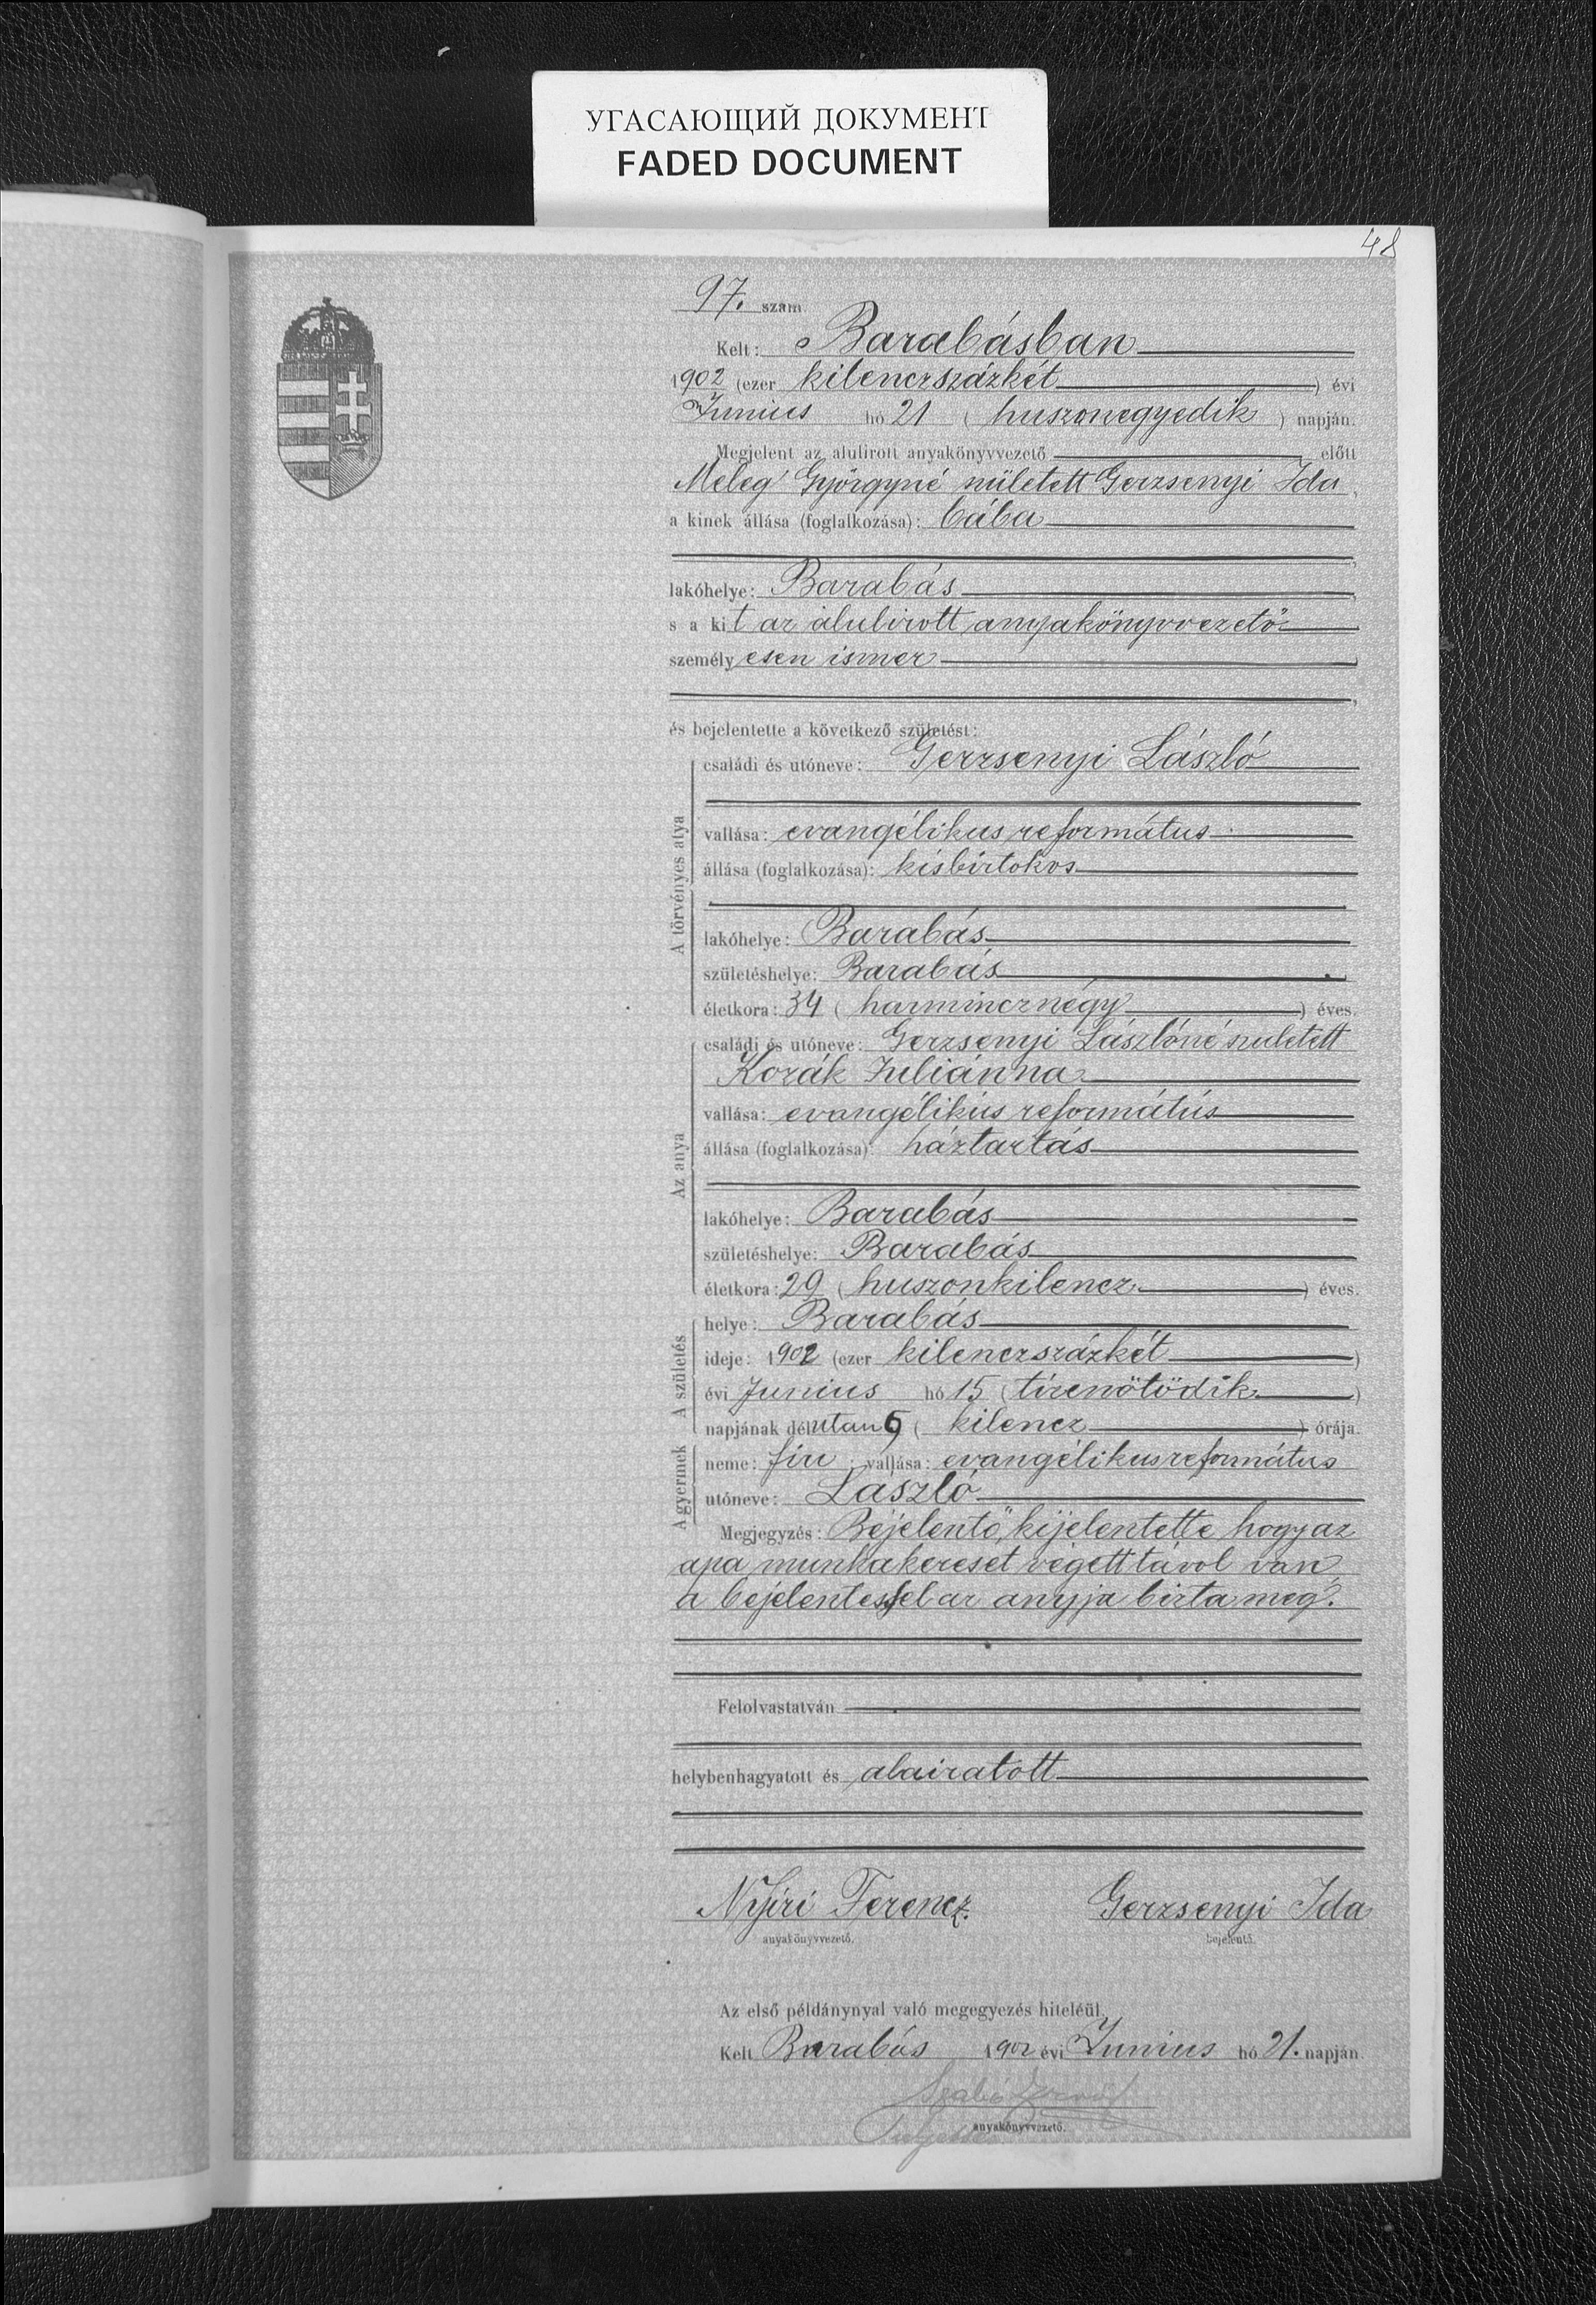 УГАСАЮЩИЙ ДОКУМЕНТ
FADED DOCUMENT
48
97. szám
Kelt: Barabásban
1902 (ezer kilenczszázkét) évi
Junius hó 21 (huszonegyedik) napján.
Megjelent az alulirott anyakönyvvezető előtt
Meleg Györgyné született Gerzsenyi Ida,
a kinek állása (foglalkozása): bába
lakóhelye: Barabás,
s a kit az alulirott anyakönyvvezető
személyesen ismer,
és bejelentette a következő születést:
A törvényes atya
családi és utóneve: Gerzsenyi László
vallása: evangélikus református
állása (foglalkozása): kisbirtokos
lakóhelye: Barabás
születéshelye: Barabás
életkora: 34 (harmincznégy) éves.
Az anya
családi és utóneve: Gerzsenyi Lászlóné született
Kozák Juliánna
vallása: evangélikus református
állása (foglalkozása): háztartás
lakóhelye: Barabás
születéshelye: Barabás
életkora: 29 (huszonkilencz) éves.
A születés
helye: Barabás
ideje: 1902 (ezer kilenczszázkét)
évi Junius hó 15 (tizenötödik)
napjának délutan 9 (kilencz) órája.
A gyermek
neme: fiu; vallása: evangélikus református
utóneve: László
Megjegyzés: Bejelentő kijelentette hogy az
apa munkakereset végett távol van,
a bejelentéssel az anyja bizta meg.
Felolvastatván
helybenhagyatott és aláiratott
Nyíri Ferencz. Gerzsenyi Ida
anyakönyvvezető. bejelentő.
Az első példánynyal való megegyezés hiteléül.
Kelt Barabás 1902 évi Junius hó 21. napján.
Szabó
anyakönyvvezető.